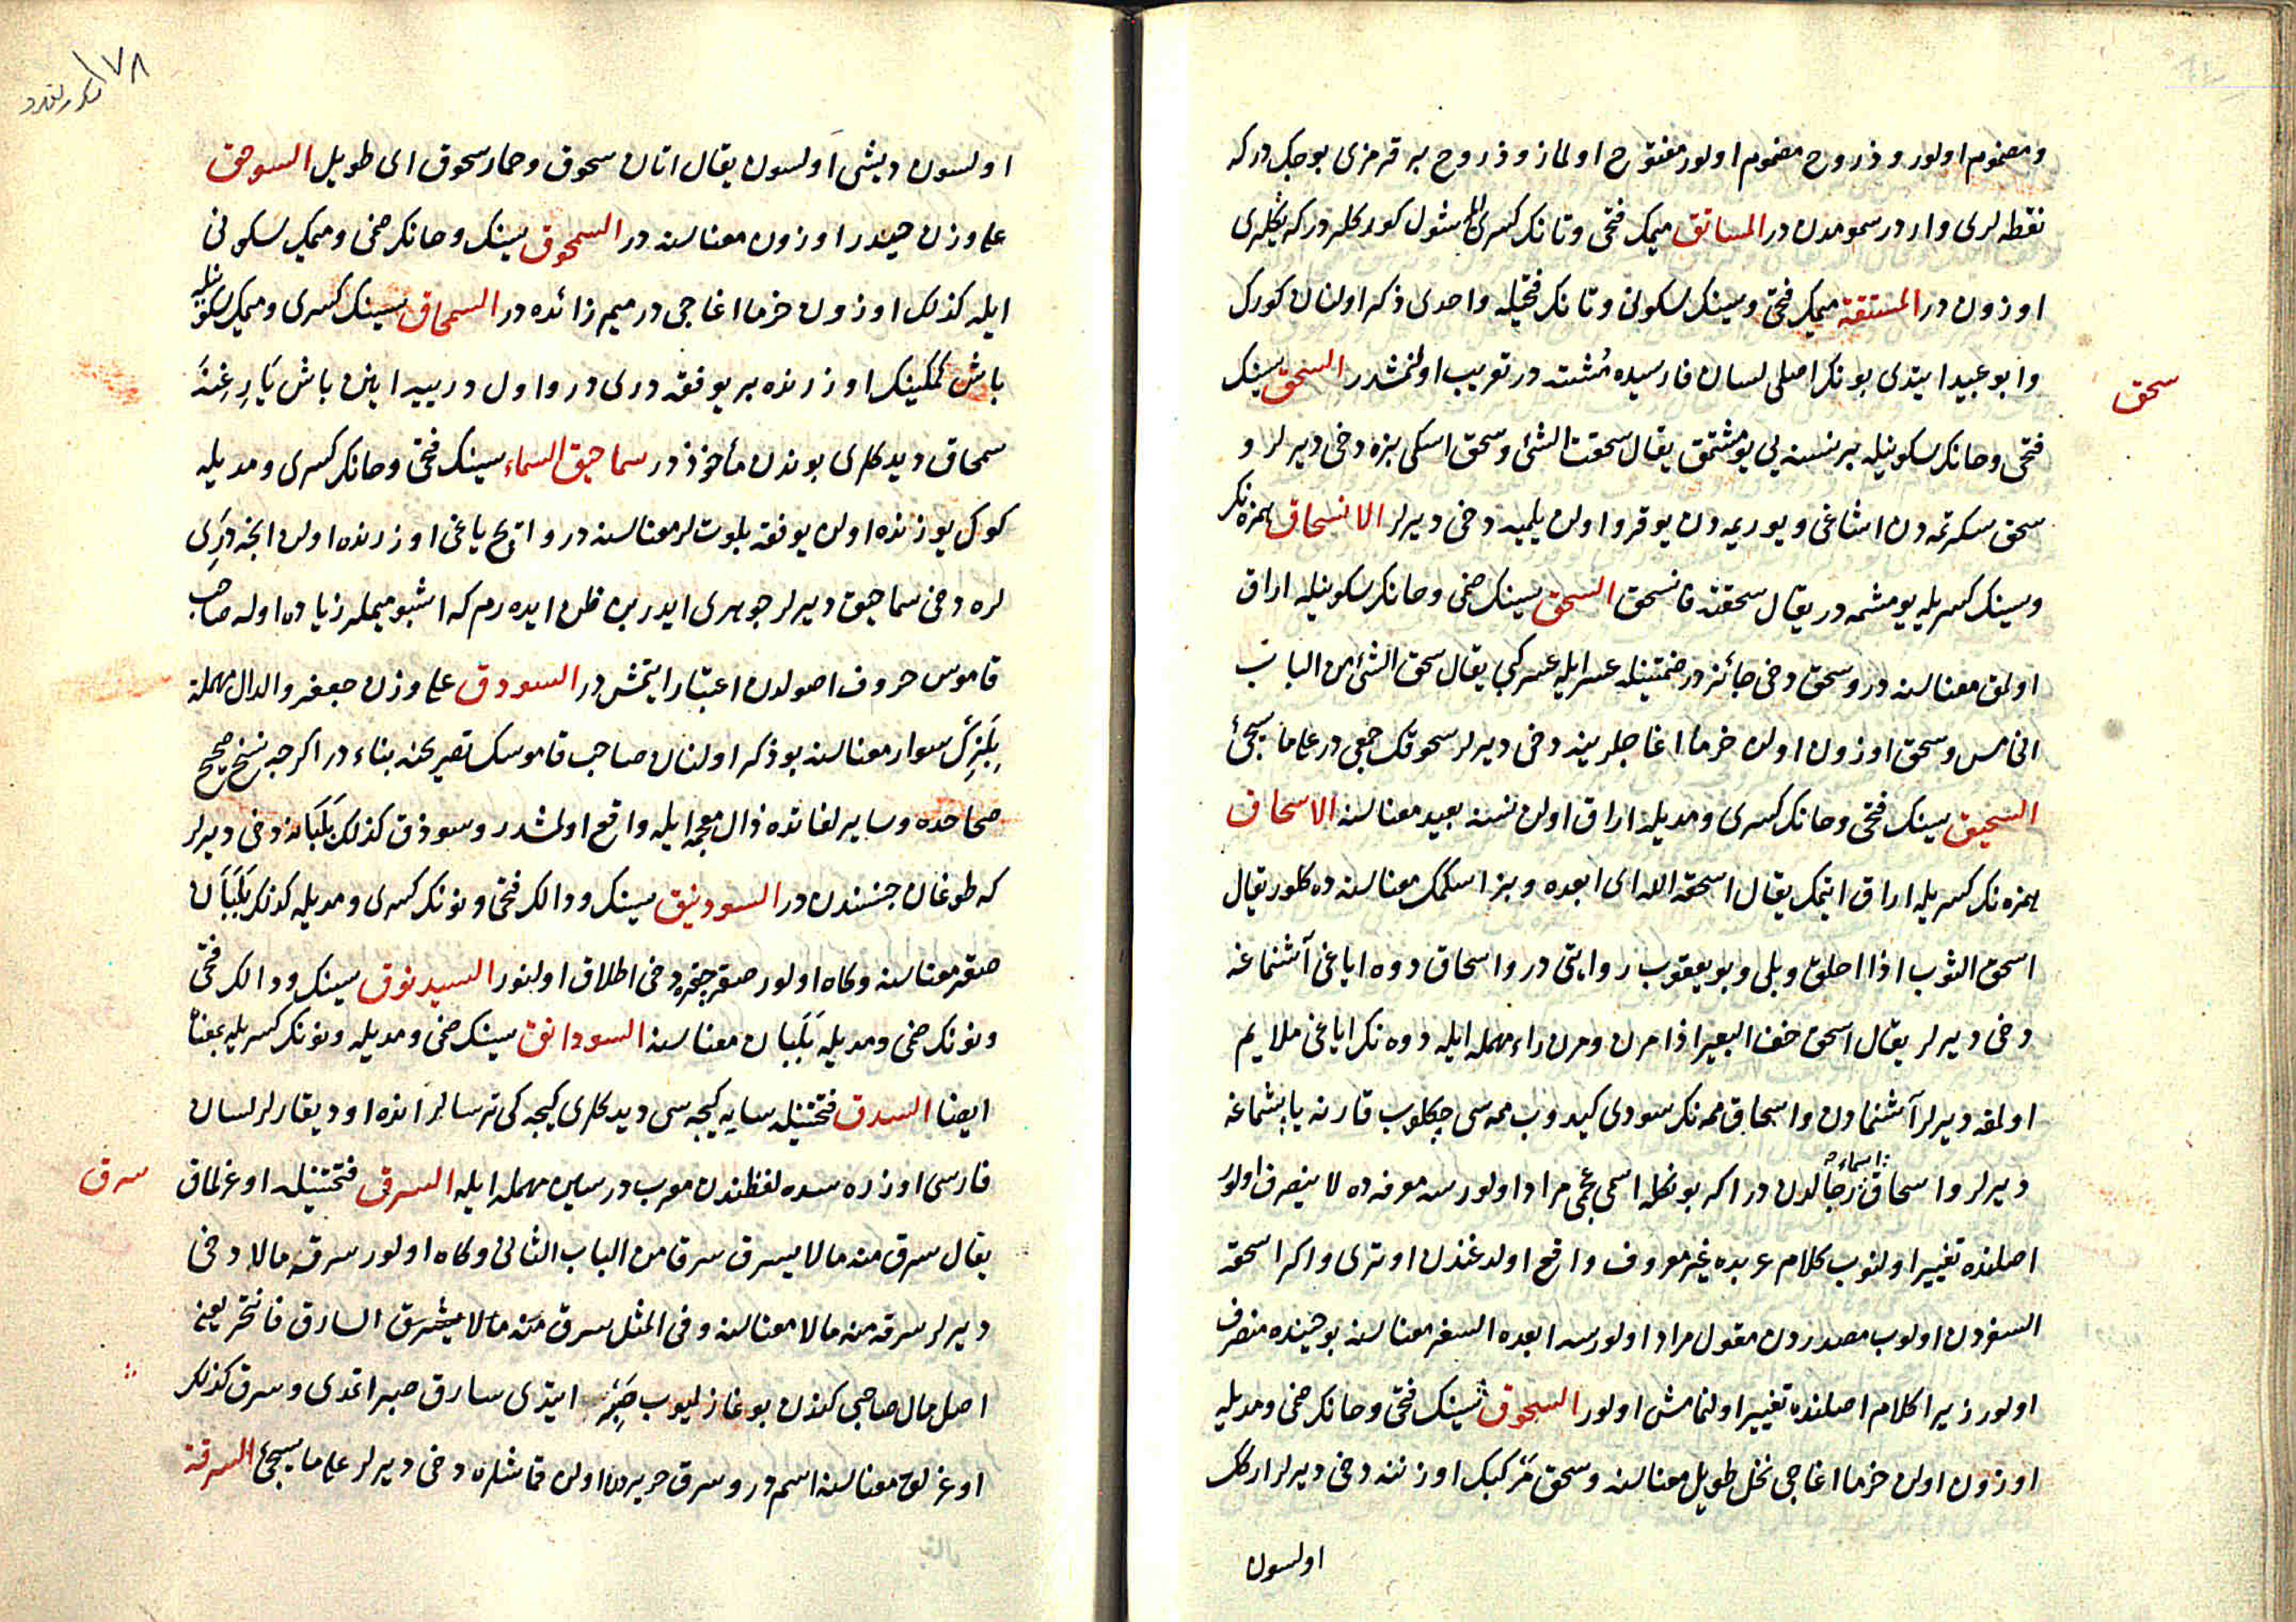 و مضموم اولور و ذروح مضموم اولور مفتوح اولماز و ذروح بر قرمزی بوجک در که
نقطه لری وار در سمومدن در المساتق میمک فتحی و تانک کسری ایله شول کورکلر در که یکلری
اوزون در المستقة میمک فتحی و سینک سکونی و تانک فتحیله واحدی ذکر اولنان کورک
وابو عبید ایتدی بونک اصلی لسان فارسیده مشته در تعریب اولنمشدر السحق سینک
سحق
فتحی و حانک سکونیله بر نسنه یی یومشتمق یقال سحقت الشئ و سحق اسکی بزه دخی دیرلر و
سحق سکرتمه دن اشاغی و یوریمه دن یوقرو اولن یلمیه دخی دیرلر الانسحاق همزه نک
و سینک کسریله یومشمه در یقال سحقته فانسحق السحق سینک ضمی و حانک سکونیله اراق
اولمق معناسنه در و سحق دخی جائز در ضمتینله عسر ایله عسر کبی یقال سحق الشئ من الباب
الخامس و سحق اوزون اولن خرما اغاجلرینه دخی دیرلر سحوقک جمعی در علی ما سیجئ
السحیق سینک فتحی و حانک کسری و مدیله اراق اولن نسنه بعید معناسنه الاسحاق
همزه نک کسریله اراق ایتمک یقال اسحقه الله ای ابعده و بز اسکمک معناسنه ده کلور یقال
اسحق الثوب اذا اخلق و بلی و بو یعقوب روایتی در و اسحاق دوه ایاغی آشنماغه
دخی دیرلر یقال اسحق خف البعیر اذا مرن و مرن راء مهمله ایله دوه نک ایاغی ملایم
اولمغه دیرلر آشنمادن و اسحاق ممه نک سودی کیدوب ممه سی چکلوب قارنه یاپشماغه
دیرلر و اسحاق اسماء رجالدن در اکر بونکله اسمی عجمی مراد اولورسه معرفه ده لا ینصرف اولور
اصلنده تغییر اولنوب کلام عربده غیر معروف واقع اولدغندن اوتری و اکر اسحقه
السفردن اولوب مصدردن مقول مراد اولورسه ابعده السفر معناسنه بو حینده منصرف
اولور زیرا کلام اصلنده تغییر اولنمامش اولور السحوق سینک فتحی و حانک ضمی و مدیله
اوزون اولن خرما اغاجی نخل طویل معناسنه و سحق مرکبک اوزننه دخی دیرلر ارکک
اولسون
٧٨
اولسون دیشی اولسون یقال اتان سحوق و حمار سحوق ای طویل السوحق
علی وزن حیدر اوزون معناسنه در السمحوق سینک و حانک ضمی و میمک سکونی
ایله کذلک اوزون خرما اغاجی در میم زائده در السمحاق سینک کسری و میمک سکونیله
باش کمکینک اوزرنده بر یوفقه دری در و اول دریه ایرن باش یارغنه
سمحاق دیدکلری بوندن مأخوذ در سماحیق السماء سینک فتحی و حانک کسری و مدیله
کوک یوزنده اولن یوفقه بلوت لر معناسنه در و ایچ یاغی اوزرنده اولن انجه دری
لره دخی سماحیق دیرلر جوهری ایدر بن ظن ایده رم که اشبو میملر زیاده اوله صاحب
قاموس حروف اصولدن اعتبار ایتمش در السودق علی وزن جعفر والدال مهملة
بلزک سوار معناسنه بو ذکر اولنان صاحب قاموسک تصریحنه بناء در اکرچه نسخ صحیح
صحاحده و سایر لغاتده ذال معجمه ایله واقع اولمشدر و سوذق کذلک بلبانه دخی دیرلر
که طوغان جنسندن در السودنیق سینک و دالک فتحی و نونک کسری و مدیله کذلک بلبان
صقر معناسنه و کاه اولور صقر چغره دخی اطلاق اولنور السیدنوق سینک و دالک فتحی
و نونک ضمی و مدیله بلبان معناسنه السودانق سینک ضمی و مدیله و نونک کسریله بمعناه
ایضا السدق فتحتینله سایه کیجه سی دیدکلری کیجه کی ترسالر انده اود یقارلر لسان
فارسی اوزره سده لفظندن معرب در سین مهمله ایله السرق فتحتینله اوغرلمق
سرق
یقال سرق منه مالا یسرق سرقا من الباب الثانی و کاه اولور سرقه مالا دخی
دیرلر سرقه منه مالا معناسنه و فی المثل سرق منه مالا السارق فانتحر یعنی
اصل مال صاحبی کندن بوغازلیوب ایتدی سارق صبر اتمدی و سرق کذلک
اوغرلق معناسنه اسم در و سرق حریردن اولن قماشلره دخی دیرلر علی ما سیجئ السرقة